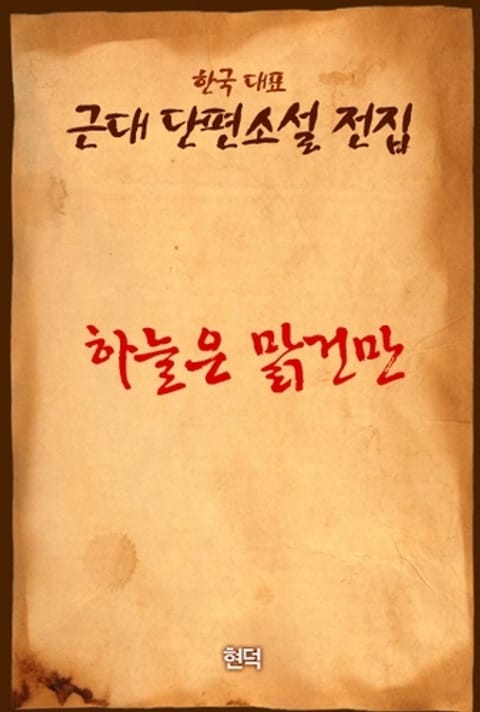 한국 대표
근대 단편소설 전집
하늘은 맑건만
현덕